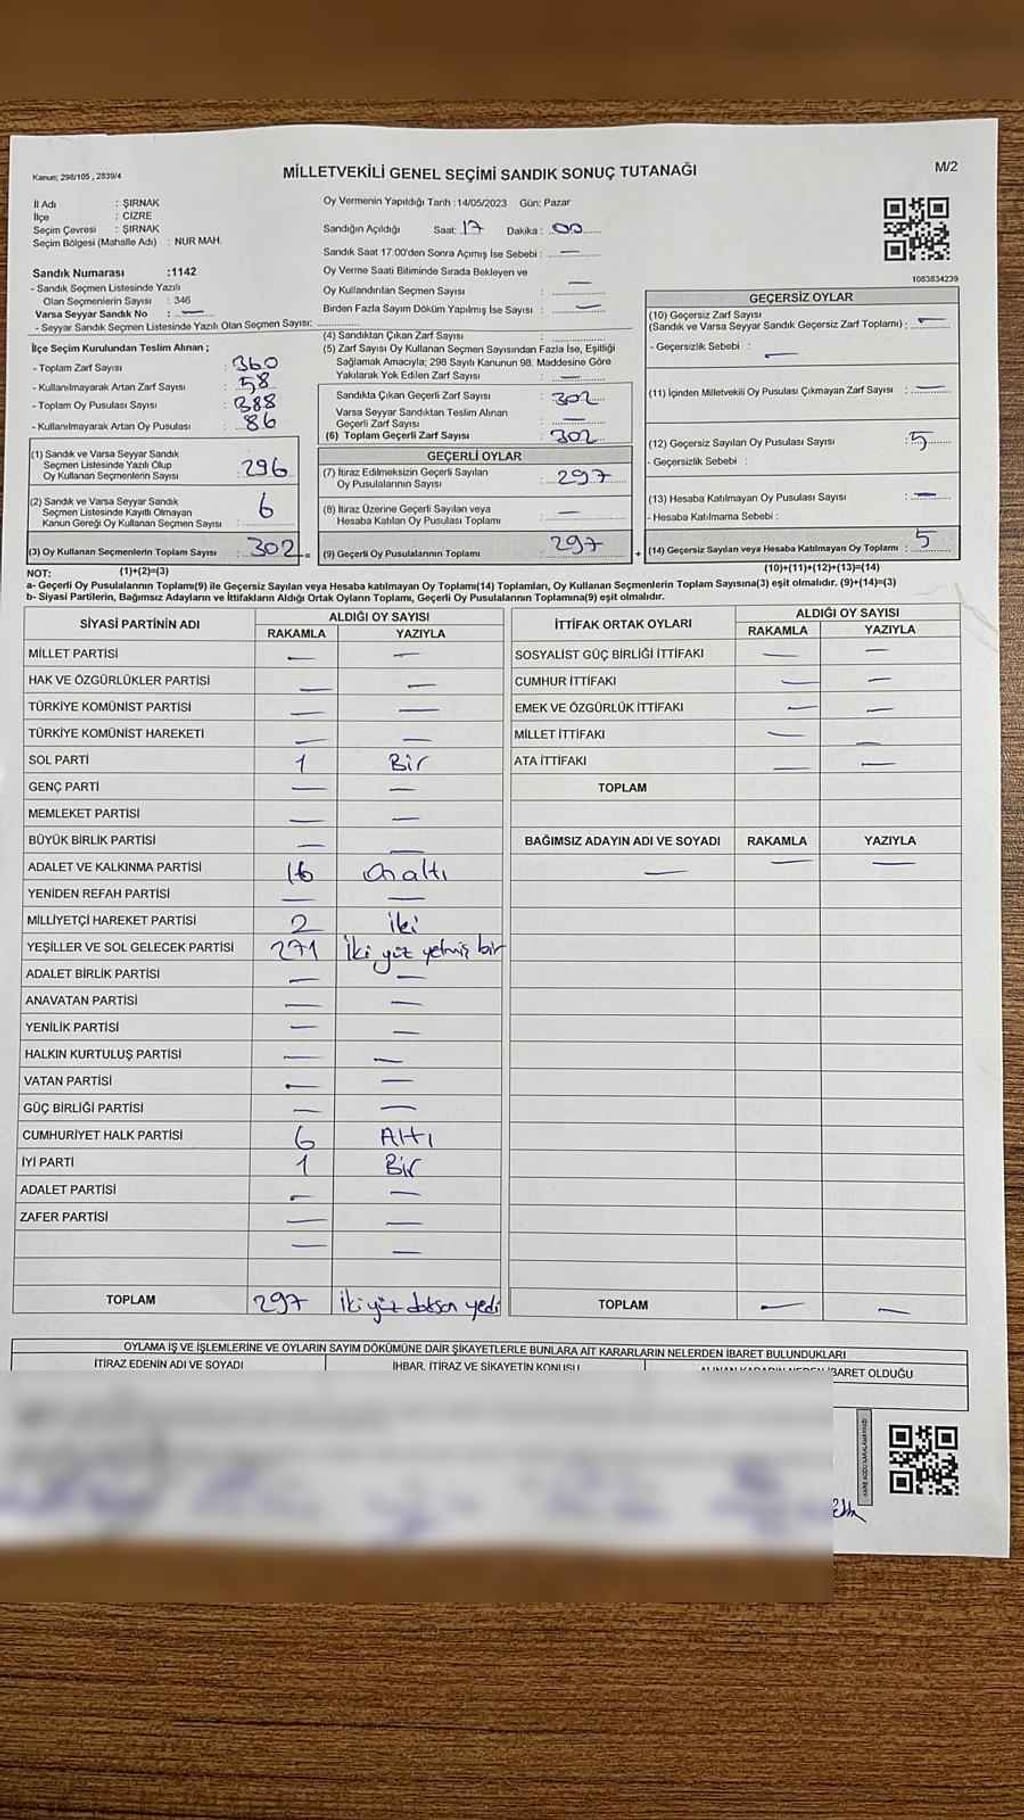 Kanun; 298/105 , 2839/4
MİLLETVEKİLİ GENEL SEÇİMİ SANDIK SONUÇ TUTANAĞI
M/2
İl Adı : ŞIRNAK
İlçe : CİZRE
Seçim Çevresi : ŞIRNAK
Seçim Bölgesi (Mahalle Adı) : NUR MAH.
Sandık Numarası :1142
- Sandık Seçmen Listesinde Yazılı
Olan Seçmenlerin Sayısı : 346
Varsa Seyyar Sandık No : —
- Seyyar Sandık Seçmen Listesinde Yazılı Olan Seçmen Sayısı:
İlçe Seçim Kurulundan Teslim Alınan ;
- Toplam Zarf Sayısı : 360
- Kullanılmayarak Artan Zarf Sayısı : 58
- Toplam Oy Pusulası Sayısı : 388
- Kullanılmayarak Artan Oy Pusulası : 86
(1) Sandık ve Varsa Seyyar Sandık
Seçmen Listesinde Yazılı Olup
Oy Kullanan Seçmenlerin Sayısı : 296
(2) Sandık ve Varsa Seyyar Sandık
Seçmen Listesinde Kayıtlı Olmayan
Kanun Gereği Oy Kullanan Seçmen Sayısı : 6
(3) Oy Kullanan Seçmenlerin Toplam Sayısı : 302
(1)+(2)=(3)
Oy Vermenin Yapıldığı Tarih :14/05/2023 Gün: Pazar
Sandığın Açıldığı Saat: 17 Dakika : 00
Sandık Saat 17.00'den Sonra Açımış İse Sebebi : —
Oy Verme Saati Bitiminde Sırada Bekleyen ve
Oy Kullandırılan Seçmen Sayısı : —
Birden Fazla Sayım Döküm Yapılmış İse Sayısı : —
(4) Sandıktan Çıkan Zarf Sayısı :
(5) Zarf Sayısı Oy Kullanan Seçmen Sayısından Fazla İse, Eşitliği
Sağlamak Amacıyla; 298 Sayılı Kanunun 98. Maddesine Göre
Yakılarak Yok Edilen Zarf Sayısı : —
Sandıkta Çıkan Geçerli Zarf Sayısı : 302
Varsa Seyyar Sandıktan Teslim Alınan
Geçerli Zarf Sayısı : —
(6) Toplam Geçerli Zarf Sayısı : 302
GEÇERLİ OYLAR
(7) İtiraz Edilmeksizin Geçerli Sayılan
Oy Pusulalarının Sayısı : 297
(8) İtiraz Üzerine Geçerli Sayılan veya
Hesaba Katılan Oy Pusulası Toplamı : —
(9) Geçerli Oy Pusulalarının Toplamı : 297
1083834239
GEÇERSİZ OYLAR
(10) Geçersiz Zarf Sayısı
(Sandık ve Varsa Seyyar Sandık Geçersiz Zarf Toplamı) : —
- Geçersizlik Sebebi : —
(11) İçinden Milletvekili Oy Pusulası Çıkmayan Zarf Sayısı : —
(12) Geçersiz Sayılan Oy Pusulası Sayısı : 5
- Geçersizlik Sebebi :
(13) Hesaba Katılmayan Oy Pusulası Sayısı : —
- Hesaba Katılmama Sebebi :
(14) Geçersiz Sayılan veya Hesaba Katılmayan Oy Toplamı : 5
(10)+(11)+(12)+(13)=(14)
NOT:
a- Geçerli Oy Pusulalarının Toplamı(9) ile Geçersiz Sayılan veya Hesaba katılmayan Oy Toplamı(14) Toplamları, Oy Kullanan Seçmenlerin Toplam Sayısına(3) eşit olmalıdır. (9)+(14)=(3)
b- Siyasi Partilerin, Bağımsız Adayların ve İttifakların Aldığı Ortak Oyların Toplamı, Geçerli Oy Pusulalarının Toplamına(9) eşit olmalıdır.
SİYASİ PARTİNİN ADI ALDIĞI OY SAYISI
RAKAMLA YAZIYLA
MİLLET PARTİSİ — —
HAK VE ÖZGÜRLÜKLER PARTİSİ — —
TÜRKİYE KOMÜNİST PARTİSİ — —
TÜRKİYE KOMÜNİST HAREKETİ — —
SOL PARTİ 1 Bir
GENÇ PARTİ — —
MEMLEKET PARTİSİ — —
BÜYÜK BİRLİK PARTİSİ — —
ADALET VE KALKINMA PARTİSİ 16 On altı
YENİDEN REFAH PARTİSİ — —
MİLLİYETÇİ HAREKET PARTİSİ 2 iki
YEŞİLLER VE SOL GELECEK PARTİSİ 271 İki yüz yetmiş bir
ADALET BİRLİK PARTİSİ — —
ANAVATAN PARTİSİ — —
YENİLİK PARTİSİ — —
HALKIN KURTULUŞ PARTİSİ — —
VATAN PARTİSİ — —
GÜÇ BİRLİĞİ PARTİSİ — —
CUMHURİYET HALK PARTİSİ 6 Altı
İYİ PARTİ 1 Bir
ADALET PARTİSİ — —
ZAFER PARTİSİ — —
— —
TOPLAM 297 İki yüz doksan yedi
İTTİFAK ORTAK OYLARI ALDIĞI OY SAYISI
RAKAMLA YAZIYLA
SOSYALİST GÜÇ BİRLİĞİ İTTİFAKI — —
CUMHUR İTTİFAKI — —
EMEK VE ÖZGÜRLÜK İTTİFAKI — —
MİLLET İTTİFAKI — —
ATA İTTİFAKI — —
TOPLAM
BAĞIMSIZ ADAYIN ADI VE SOYADI RAKAMLA YAZIYLA
— — —
TOPLAM — —
OYLAMA İŞ VE İŞLEMLERİNE VE OYLARIN SAYIM DÖKÜMÜNE DAİR ŞİKAYETLERLE BUNLARA AİT KARARLARIN NELERDEN İBARET BULUNDUKLARI
İTİRAZ EDENİN ADI VE SOYADI
İHBAR, İTİRAZ VE ŞİKAYETİN KONUSU
İBARET OLDUĞU